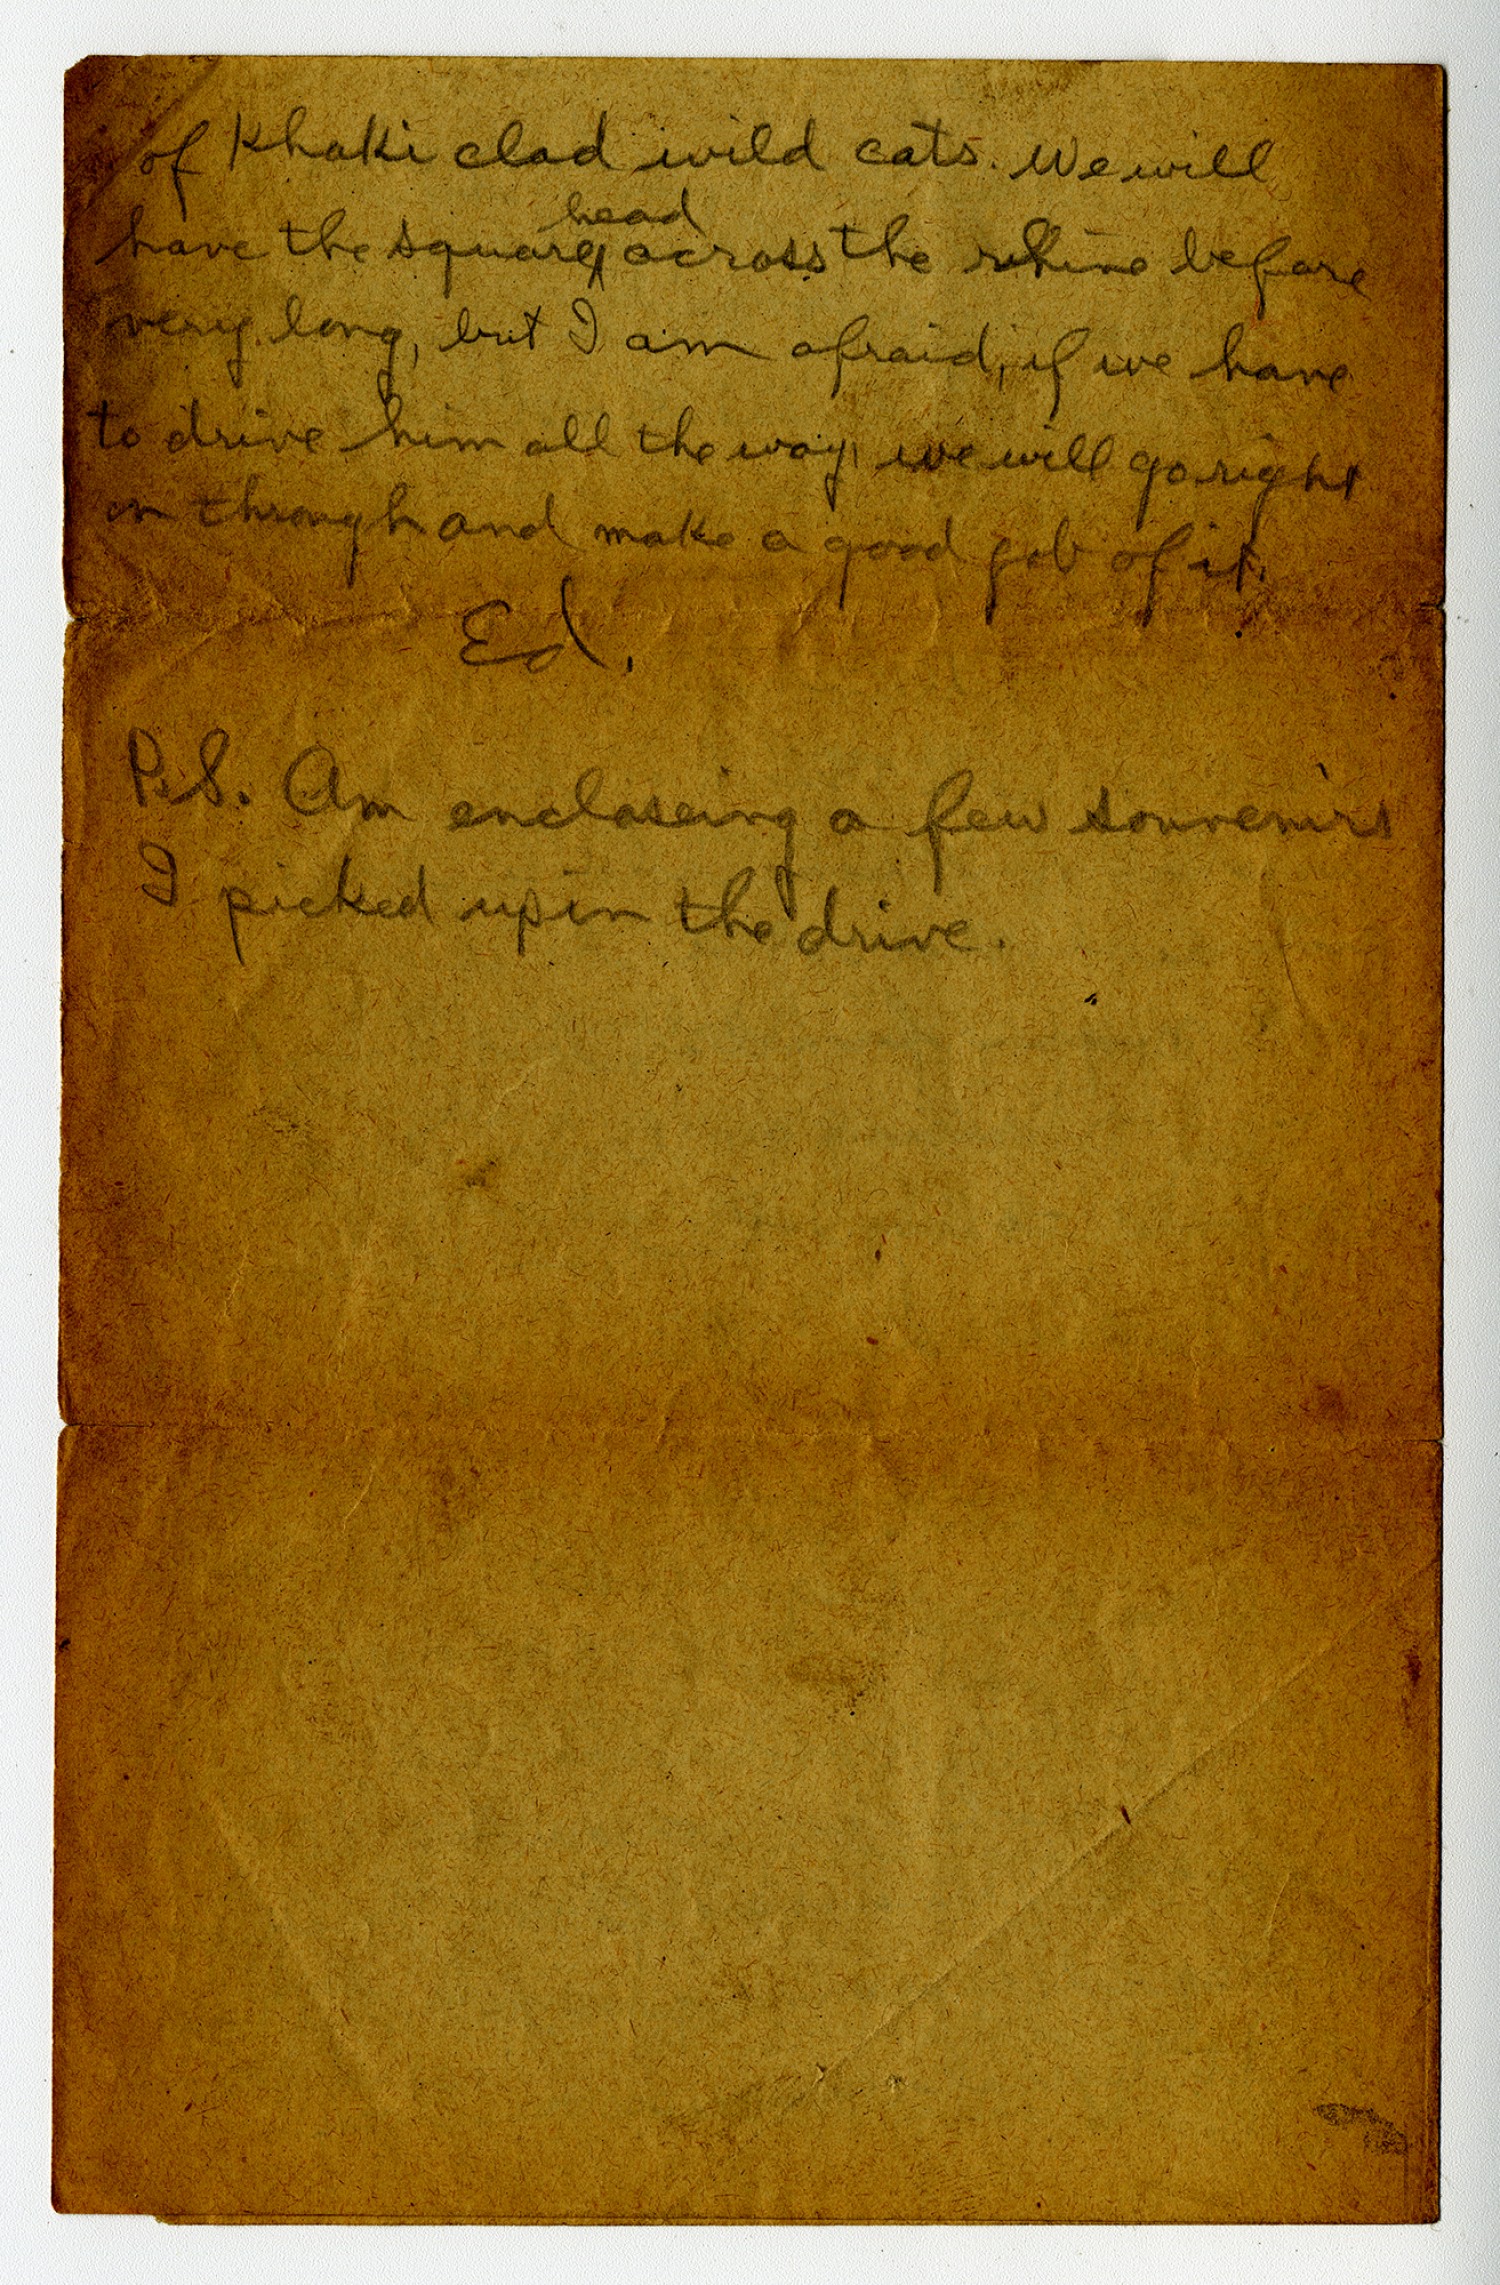 of Khaki clad wild cats. We will
head
have the square across the rhine before
very long, but I am afraid, if we have
to drive him all the way, we will go right
on through and make a good job of it.
Ed.
P.S. Am encloseing a few souvenirs
I picked up in the drive.